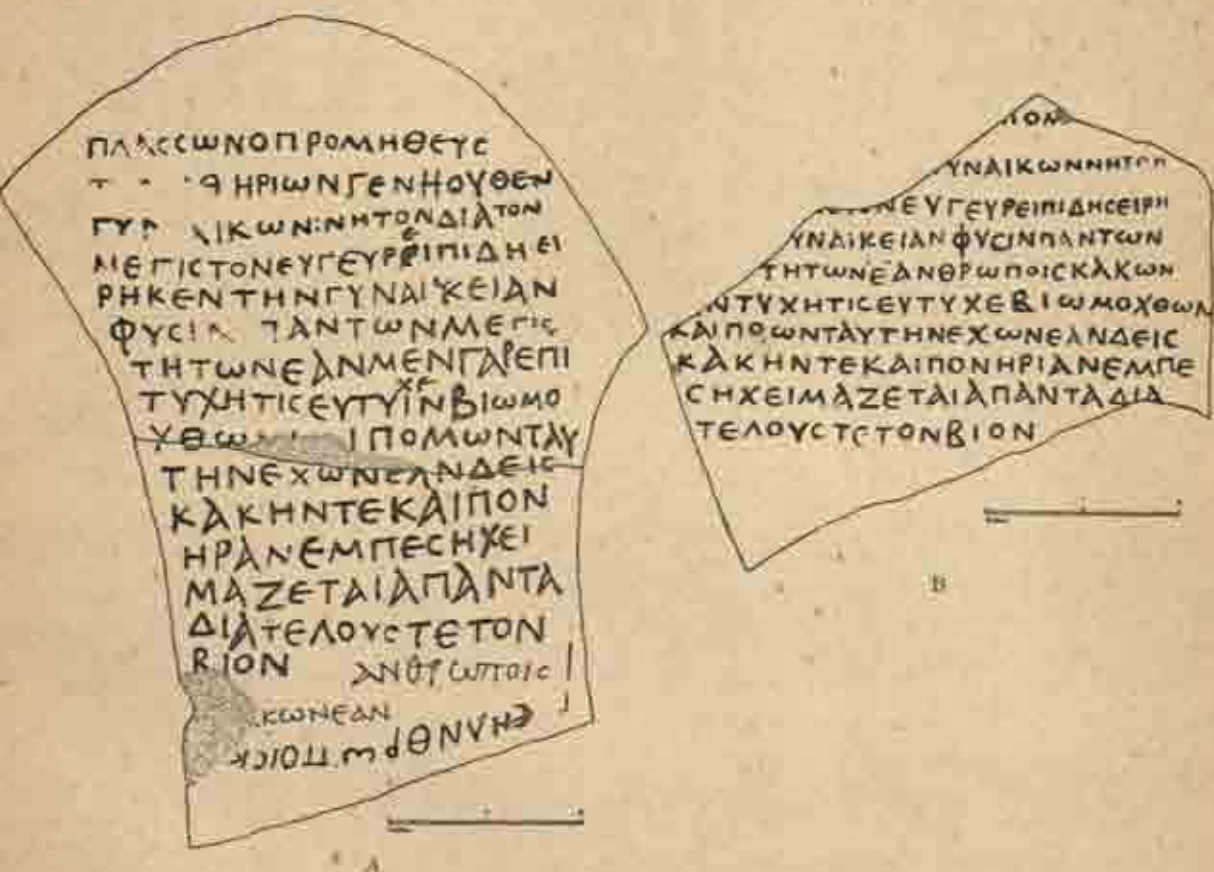 ΠΛΑССωΝΟΠΡΟΜΗΘΕΥС
ΗΡΙωΝΓΕΝΗΟΥΘΕΝ
ΙΚωΝ:ΝΗΤΟΝΔΙΑΤΟΝ
ΜΕΓΙСΤΟΝΕΥΓΕΥΡΕΙΠΙΔΗΕΙ
ΡΗΚΕΝΤΗΝΓΥΝΑΙΚΕΙΑΝ
ΦΥСΙ ΠΑΝΤωΝΜΕΓΙС
ΤΗΤωΝΕΑΝΜΕΝΓΑΡΕΠΙ
ΧΕ
ΤΥΧΗΤΙСΕΥΤΥΙΝΒΙωΜΟ
ΧΘω ΙΠΟΜωΝΤΑΥ
ΤΗΝΕΧωΝΕΑΝΔΕΙС
ΚΑΚΗΝΤΕΚΑΙΠΟΝ
ΗΡΑΝΕΜΠΕСΗΧΕΙ
ΜΑΖΕΤΑΙΑΠΑΝΤΑ
ΔΙΑΤΕΛΟΥСΤΕΤΟΝ
ΒΙΟΝ ΑΝΘΡωΠΟΙС
ΚωΝΕΑΝ
СΗΑΝΘΡωΠΟΙСΚ
A
ΠΟΝ
ΥΝΑΙΚωΝΝΗΤΟΝ
ΝΕΥΓΕΥΡΕΙΠΙΔΗСΕΙΡΗ
ΥΝΑΙΚΕΙΑΝΦΥСΙΝΠΑΝΤωΝ
ΤΗΤωΝΕΑΝΘΡωΠΟΙСΚΑΚωΝ
ΝΤΥΧΗΤΙСΕΥΤΥΧΕΒΙωΜΟΧΘωΝ
ΚΑΙΠΟωΝΤΑΥΤΗΝΕΧωΝΕΑΝΔΕΙС
ΚΑΚΗΝΤΕΚΑΙΠΟΝΗΡΙΑΝΕΜΠΕ
СΗΧΕΙΜΑΖΕΤΑΙΑΠΑΝΤΑΔΙΑ
ΤΕΛΟΥСΤΕΤΟΝΒΙΟΝ
B